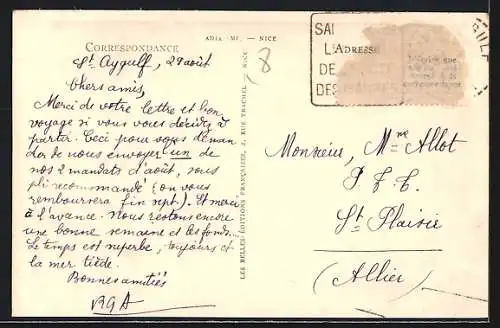 CORRESPONDANCE
St Aygulf, 29 août
Chers amis,
Merci de votre lettre et bon
voyage si vous vous décidez à
partir. Ceci pour vous deman
der de nous envoyer un de
nos 2 mandats d'août, sous
pli recommandé (on vous
remboursera fin sept). Et merci
à l'avance. Nous restons encore
une bonne semaine et
Le temps est superbe, toujours et
la mer tiède.
Bonnes amitiés
RGA
— NICE
8
LES BELLES ÉDITIONS FRANÇAISES, 2, RUE TRACHEL, NICE
SAI
L'ADRESSE
DE
DES
Monsieur, Mme Allot
P. T. T.
St Plaisir
(Allier)